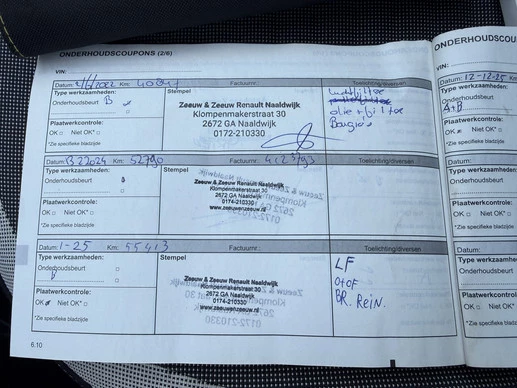 ONDERHOUDSCOUPONS (2/6)
VIN:
Datum: Km: Factuurnr.: Toelichting/diversen
Type werkzaamheden:
Onderhoudsbeurt B
Stempel
Zeeuw & Zeeuw Renault Naaldwijk
Klompenmakerstraat 30
2672 GA Naaldwijk
0172-210330
olie + filter
Bougies
Plaatwerkcontrole:
OK Niet OK*
*Zie specifieke bladzijde
Datum: Km: 52790 Factuurnr.: Toelichting/diversen
Type werkzaamheden:
Onderhoudsbeurt
Stempel
Zeeuw & Zeeuw Renault Naaldwijk
Klompenmakerstraat 30
2672 GA Naaldwijk
0174-210330
www.zeeuwenzeeuw.nl
Plaatwerkcontrole:
OK Niet OK*
*Zie specifieke bladzijde
Datum: 1-25 Km: 55413 Factuurnr.: Toelichting/diversen
Type werkzaamheden:
Onderhoudsbeurt
Stempel
Zeeuw & Zeeuw Renault Naaldwijk
Klompenmakerstraat 30
2672 GA Naaldwijk
0174-210330
www.zeeuwenzeeuw.nl
LF
O+OF
BR. REIN.
Plaatwerkcontrole:
OK Niet OK*
*Zie specifieke bladzijde
6.10
ONDERHOUDSCOU
VIN:
Datum: 12-12-25
Type werkzaamheden:
Onderhoudsbeurt
A+B
Plaatwerkcontrole:
OK Niet OK*
*Zie specifieke bladzijde
Datum:
Type werkzaamheden:
Onderhoudsbeurt
Plaatwerkcontrole:
OK Niet OK*
*Zie specifieke bladzijde
Datum:
Type werkzaamheden:
Onderhoudsbeurt
Plaatwerkcontrole:
OK Niet OK*
*Zie specifieke bladzijde